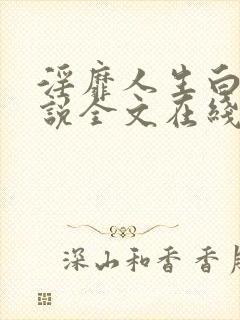 淫靡人生白
說全文在綫
深山和香香